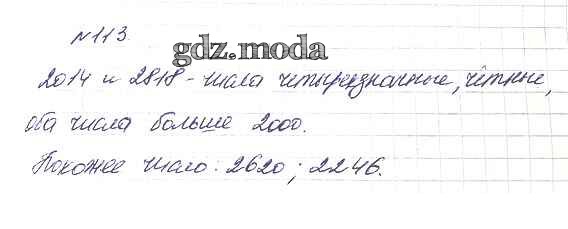 №113.
gdz.moda
2014 и 2818 - числа четырёхзначные, чётные,
оба числа больше 2000.
Похожее число: 2620; 2246.